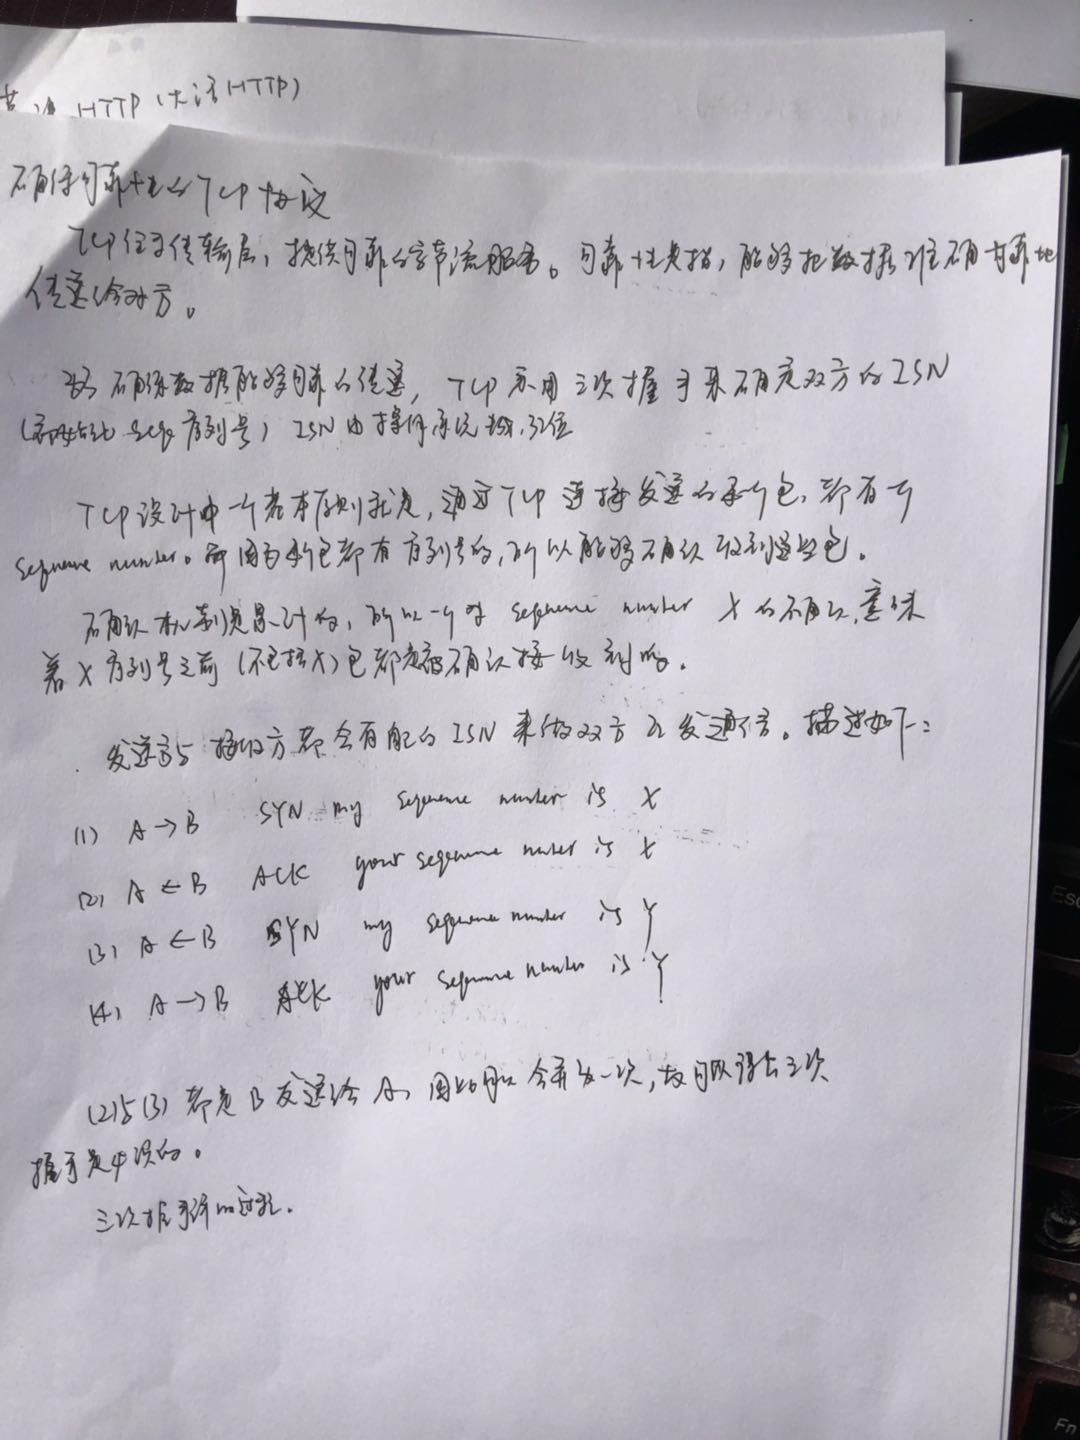 HTTP (大话HTTP)
确保可靠性的TCP协议
TCP位于传输层，提供可靠的字节流服务。可靠性是指，能够把数据准确可靠地
传递给对方。
为了确保数据能够可靠的传递，TCP采用三次握手来确定双方的ISN
(初始化 seq 序列号) ISN由操作系统 32位
TCP设计中一个基本原则就是，通过TCP连接发送的每个包，都有一个
sequence number。而因为每个包都有序列号的，所以能够确认收到这些包。
确认机制是累计的，所以一个对 sequence number X的确认，意味
着X序列号之前(不包括X)包都是被确认接收到的。
发送方与接收方都会有自己的ISN来做双方互发通信。描述如下：
(1) A→B SYN my sequence number is X
(2) A←B ACK your sequence number is X
(3) A←B SYN my sequence number is Y
(4) A→B ACK your sequence number is Y
(2)与(3)都是B发送给A，因此可以合并成一次，故可以得出三次
握手是4次的。
三次握手详细过程.